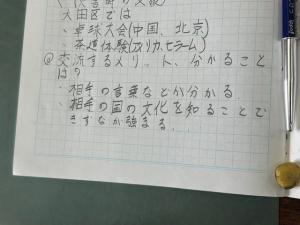 大田区では
・卓球大会(中国、北京)
・茶道体験(アメリカ、セーラーム)
◎交流するメリット、分かること
は?
・相手の言葉などが分かる
・相手の国の文化を知ることで
きずなが強まる。